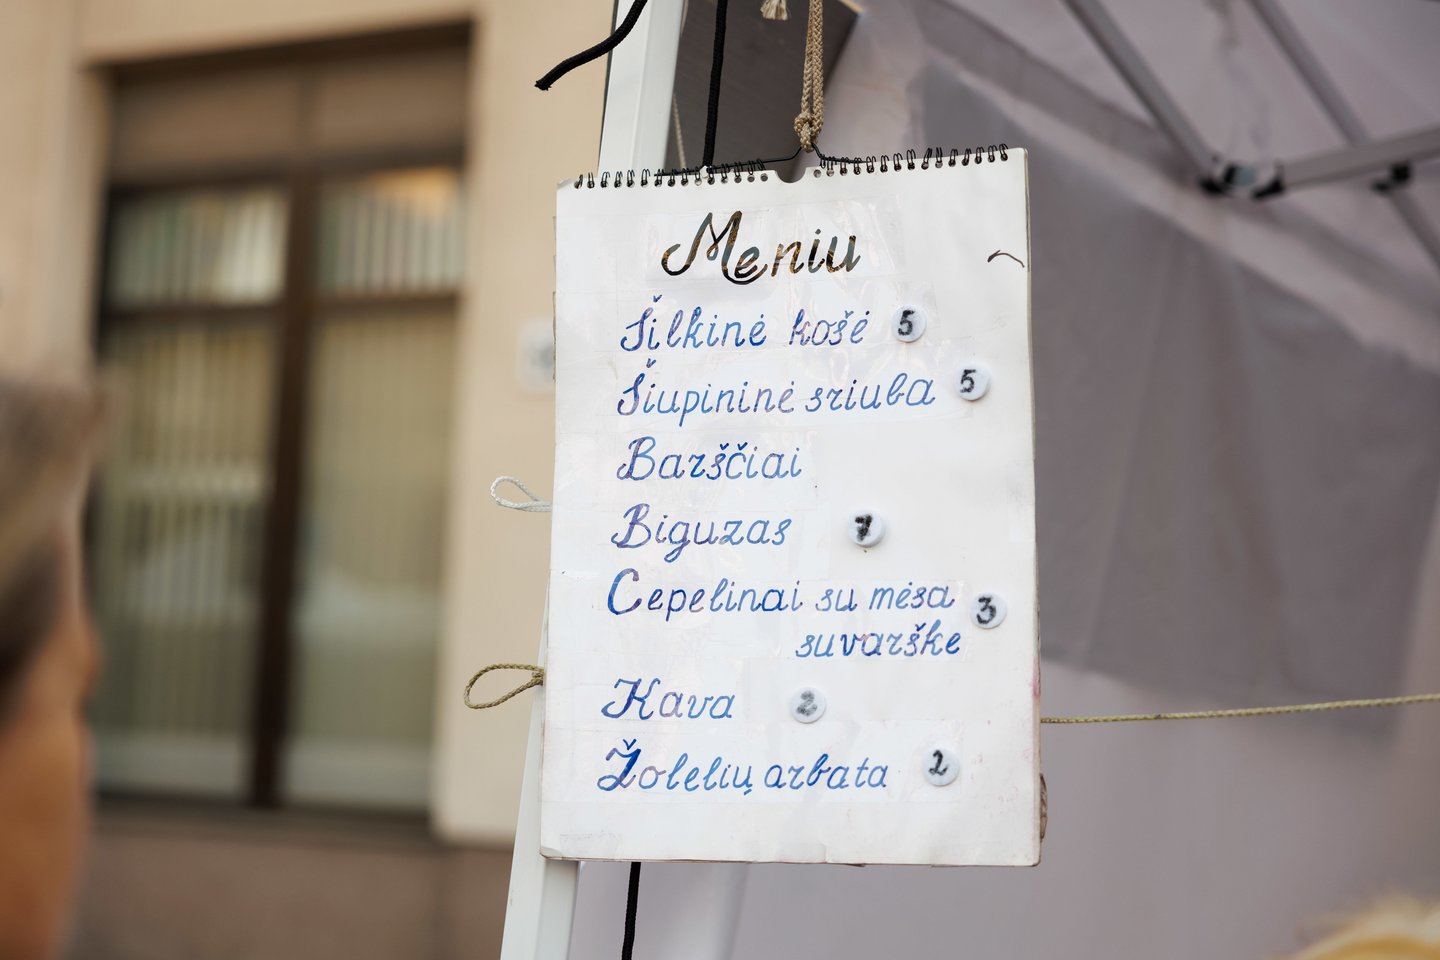 Meniu
Šilkinė košė 5
Šiupininė sriuba 5
Barščiai
Biguzas 7
Cepelinai su mėsa 3
su varške
Kava 2
Žolelių arbata 2